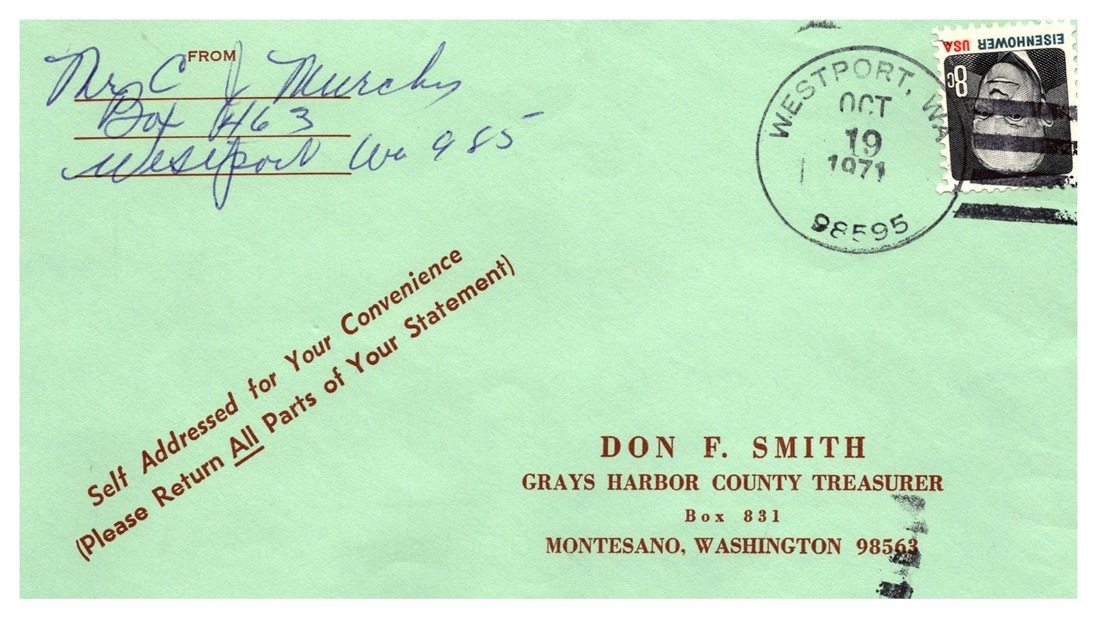 FROM
Mr C J Murchy
Box 463
Westport Wa 985
WESTPORT, WA
OCT
19
1971
98595
EISENHOWER USA
8c
Self Addressed for Your Convenience
(Please Return All Parts of Your Statement)
DON F. SMITH
GRAYS HARBOR COUNTY TREASURER
Box 831
MONTESANO, WASHINGTON 98563